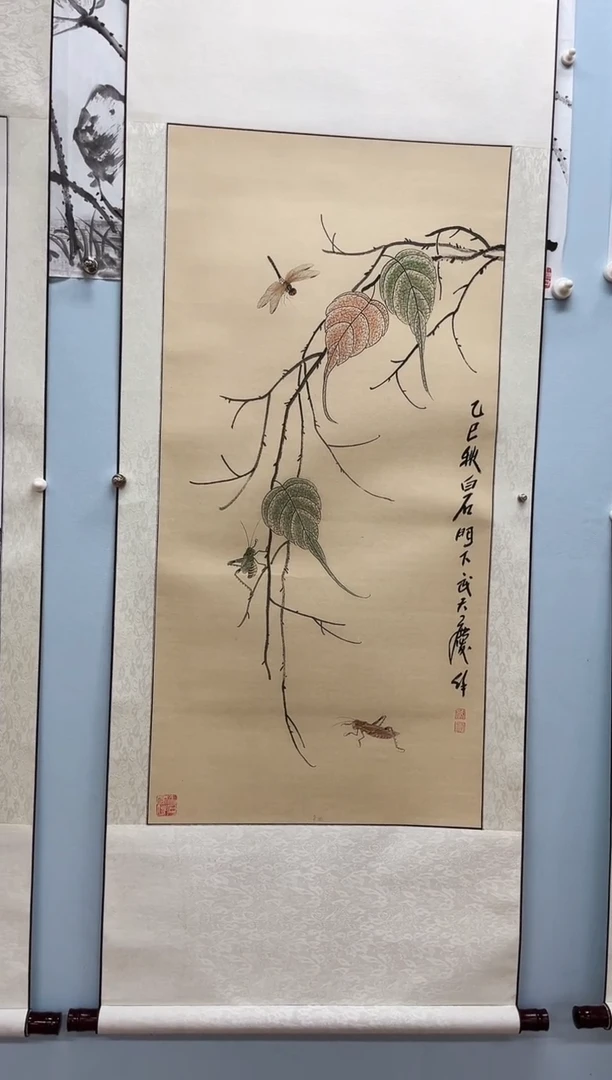 乙巳秋白石門下武天慶作